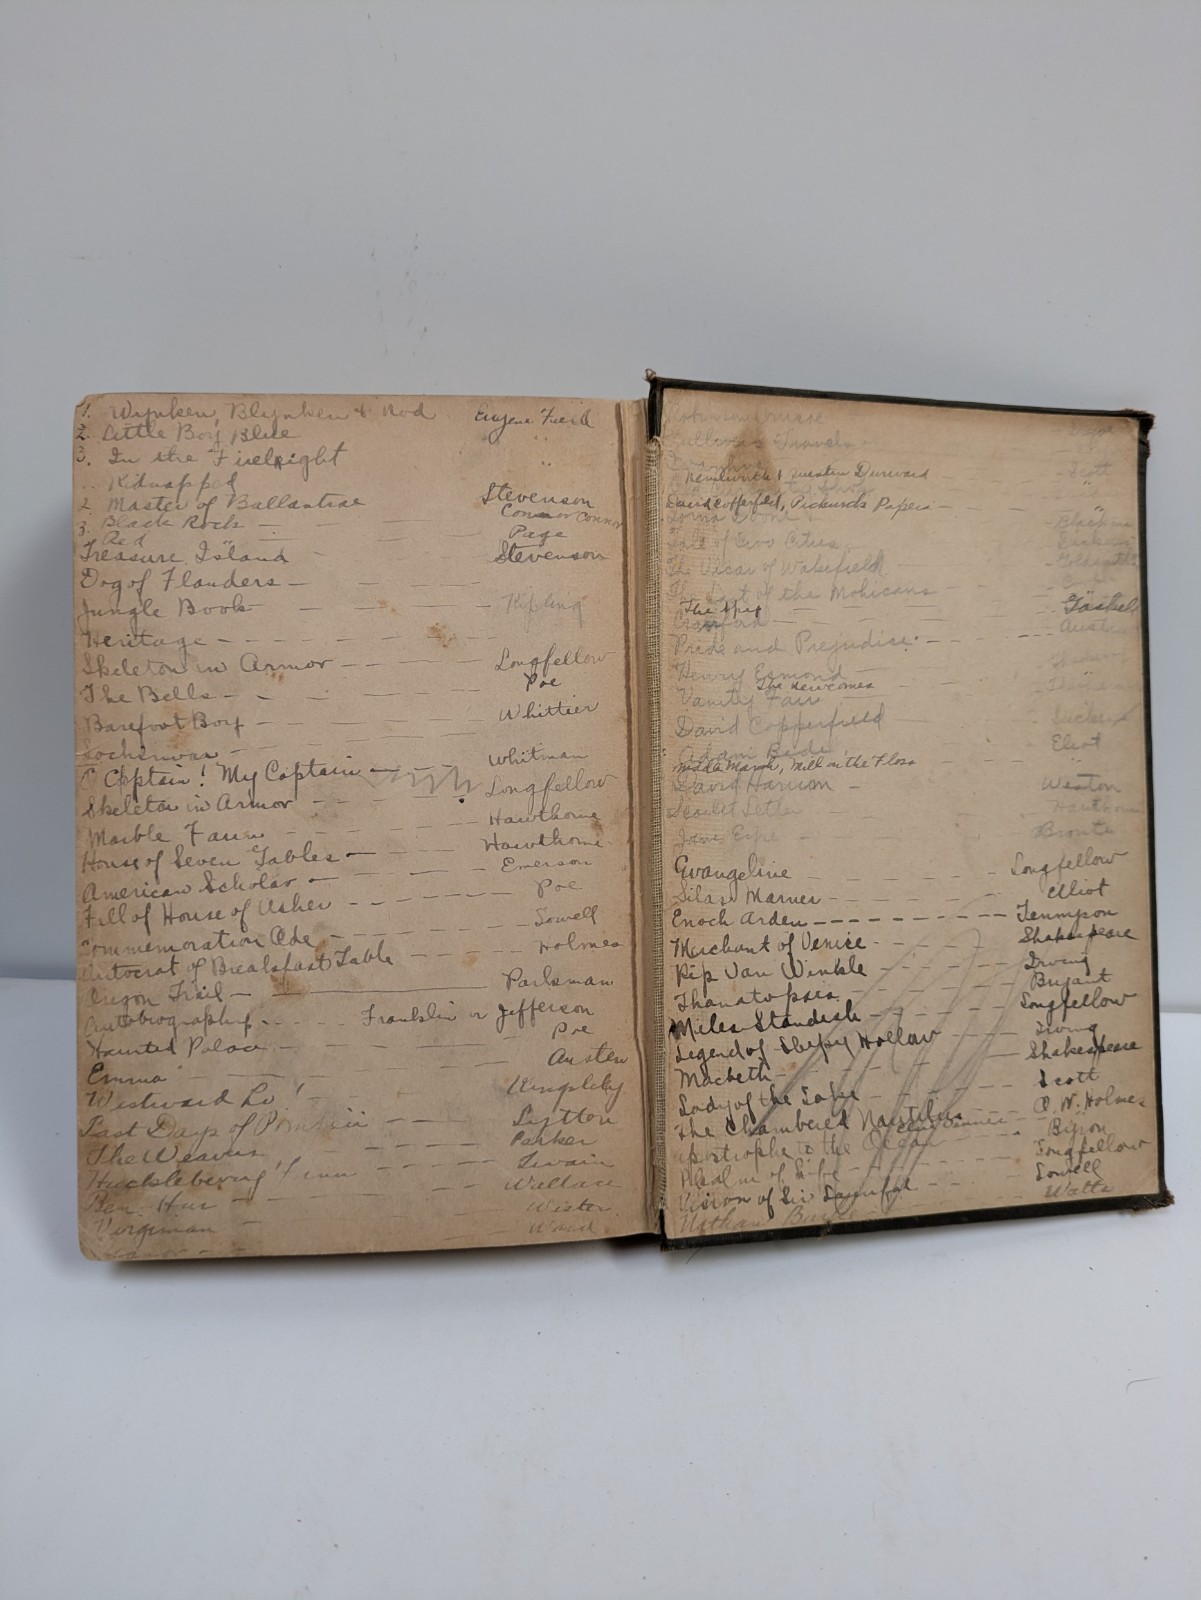 1. Wynken, Blynken & Nod Eugene Field
2. Little Boy Blue
3. In the Firelight "
Kidnapped
2. Master of Ballantrae Stevenson
3. Black Rock — — Connor Connor
Red — — — Page
Treasure Island — — — Stevenson
Dog of Flanders —
Jungle Book — — — — Kipling
Heritage - - - - - -
Skeleton in Armor - - - - Longfellow
The Bells - - - - Poe
Barefoot Boy - - - - Whittier
Lochinvar - - - -
O Captain! My Captain - - - Whitman
Skeleton in Armor - - - Longfellow
Marble Faun - - - - Hawthorne
House of Seven Gables - - - Hawthorne
American Scholar - - - - Emerson
Fall of House of Usher - - - - Poe
Commemoration Ode - - - - Lowell
Autocrat of Breakfast Table - - - Holmes
Oregon Trail — Parkman
Autobiography - - - - Franklin or Jefferson
Haunted Palace - - - - Poe
Emma - - - - Austen
Westward Ho! - - - Kingsley
Last Days of Pompeii - - - Lytton
The Weavers - - - Parker
Huckleberry Finn - - - Twain
Ben Hur - - - Wallace
Virginian - - - Wister
— — Ward
Robinson Crusoe
Gullivers Travels
Ivanhoe Scott
Kenilworth & Quentin Durward
David Copperfield, Pickwick Papers —
Lorna Doone Blackmore
Tale of Two Cities Dickens
The Vicar of Wakefield — — Goldsmith
The Last of the Mohicans — —
The Spy
Cranford — — — Gaskell
Pride and Prejudice - - - - Austen
Henry Esmond
The Newcomes
Vanity Fair — —
David Copperfield Dickens
Adam Bede Eliot
Middle March, Mill on the Floss "
David Harum — Weston
Scarlet Letter Hawthorne
Jane Eyre Bronte
Evangeline - - - - Longfellow
Silas Marner - - - - Elliot
Enoch Arden - - - - - - Tennyson
Merchant of Venice - - - - Shakespeare
Rip Van Winkle - - - - Irving
Thanatopsis - - - - Bryant
Miles Standish - - - - Longfellow
Legend of Sleepy Hollow - - - Irving
Macbeth - - - - Shakespeare
Lady of the Lake - - - - Scott
The Chambered Nautilus - - - O. W. Holmes
Apostrophe to the Ocean - - - Byron
Psalm of Life - - - Longfellow
Vision of Sir Launfal - - - Lowell
Nathan Watts